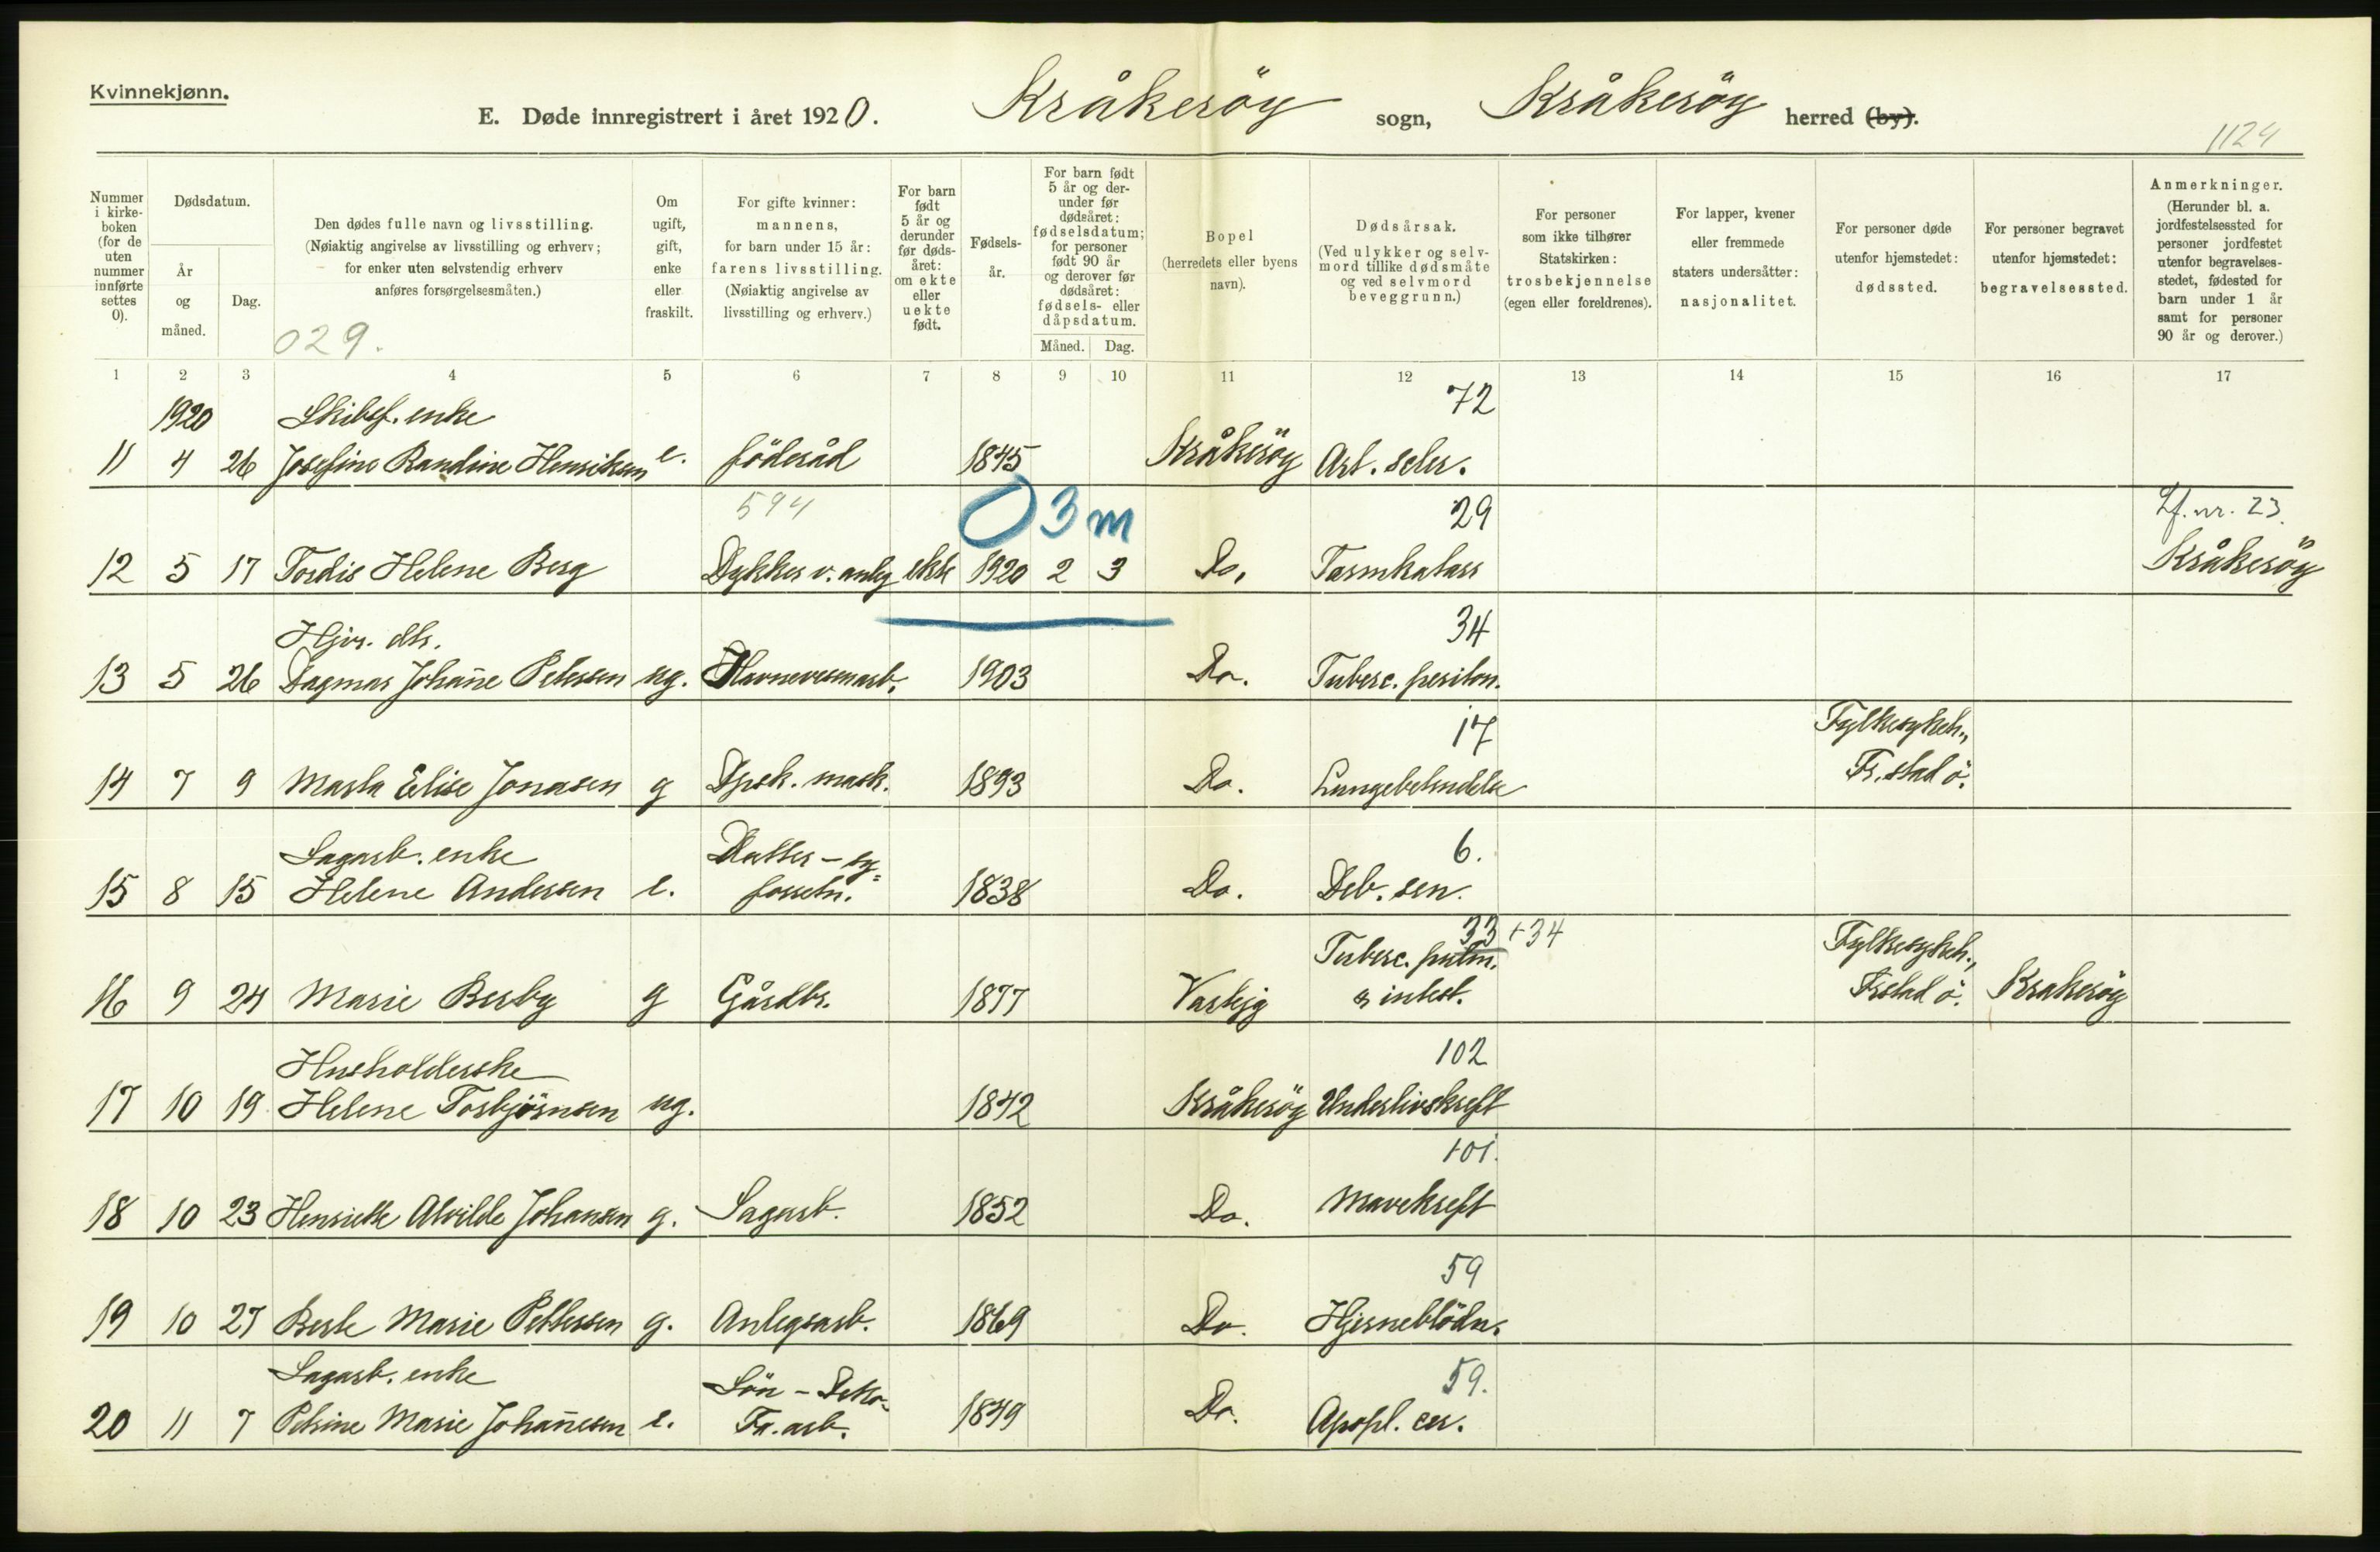 Kvinnekjønn.
E. Døde innregistrert i året 1920. Kråkeröy sogn, Kråkeröy herred (by).
1124
Nummer i kirke-boken (for de uten nummer innførte settes 0).
Dødsdatum.
År og måned.
Dag.
Den dødes fulle navn og livsstilling.
(Nøiaktig angivelse av livsstilling og erhverv;
for enker uten selvstendig erhverv
anføres forsørgelsesmåten.)
029.
Om ugift, gift, enke eller fraskilt.
For gifte kvinner:
mannens,
for barn under 15 år:
farens livsstilling.
(Nøiaktig angivelse av
livsstilling og erhverv.)
For barn født 5 år og derunder før døds-året: om ekte eller uekte født.
Fødsels-år.
For barn født 5 år og der-under før dødsåret: fødselsdatum; for personer født 90 år og derover før dødsåret: fødsels- eller dåpsdatum.
Måned. Dag.
Bopel
(herredets eller byens
navn).
Dødsårsak.
(Ved ulykker og selv-
mord tillike dødsmåte
og ved selvmord
beveggrunn.)
For personer
som ikke tilhører
Statskirken:
trosbekjennelse
(egen eller foreldrenes).
For lapper, kvener
eller fremmede
staters undersåtter:
nasjonalitet.
For personer døde
utenfor hjemstedet:
dødssted.
For personer begravet
utenfor hjemstedet:
begravelsessted.
Anmerkninger.
(Herunder bl. a.
jordfestelsessted for
personer jordfestet
utenfor begravelses-
stedet, fødested for
barn under 1 år
samt for personer
90 år og derover.)
1 2 3 4 5 6 7 8 9 10 11 12 13 14 15 16 17
1920 Skibsf. enke 72
11 4 26 Josefine Randine Henriksen e. föderåd 1845 Kråkeröy Art. scler.
594 03m 29 Lf. nr. 23.
12 5 17 Tordis Helene Berg Dykker v. anleg ekte 1920 2 3 Do. Tarmkatarr Kråkeröy
Hjv. dtr. 34
13 5 26 Dagmar Johañe Petersen ug. Havnevesenarb. 1903 Do. Tuberc. periton.
17 Fylkesykeh.,
14 7 9 Marta Elise Jonasen g Dpsk. mask. 1893 Do. Lungebetendelse Fr.stad ö.
Sagarb. enke Datter - sy= 6.
15 8 15 Helene Andersen e. forretn. 1838 Do. Deb. sen.
33 +34
Tuberc. pulm. Fylkesykeh.,
16 9 24 Marie Berby g Gårdbr. 1877 Varteig & intest. Frstad ö. Kråkeröy
Husholderske 102
17 10 19 Helene Torbjörnsen ug. 1842 Kråkeröy Underlivskreft
101.
18 10 23 Henriette Alvilde Johansen g. Sagarb. 1852 Do. Mavekreft
59
19 10 27 Berte Marie Pettersen g. Anlegsarb. 1869 Do. Hjerneblödn.
Sagarb. enke Sön - 59.
20 11 7 Petrine Marie Johañesen e. Fa. arb. 1849 Do. Apopl. cer.